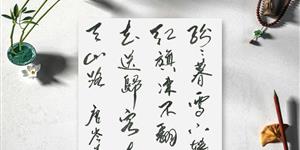 紛紛暮雪下轅
紅旗凍不翻
去送歸客
天山路 唐岑